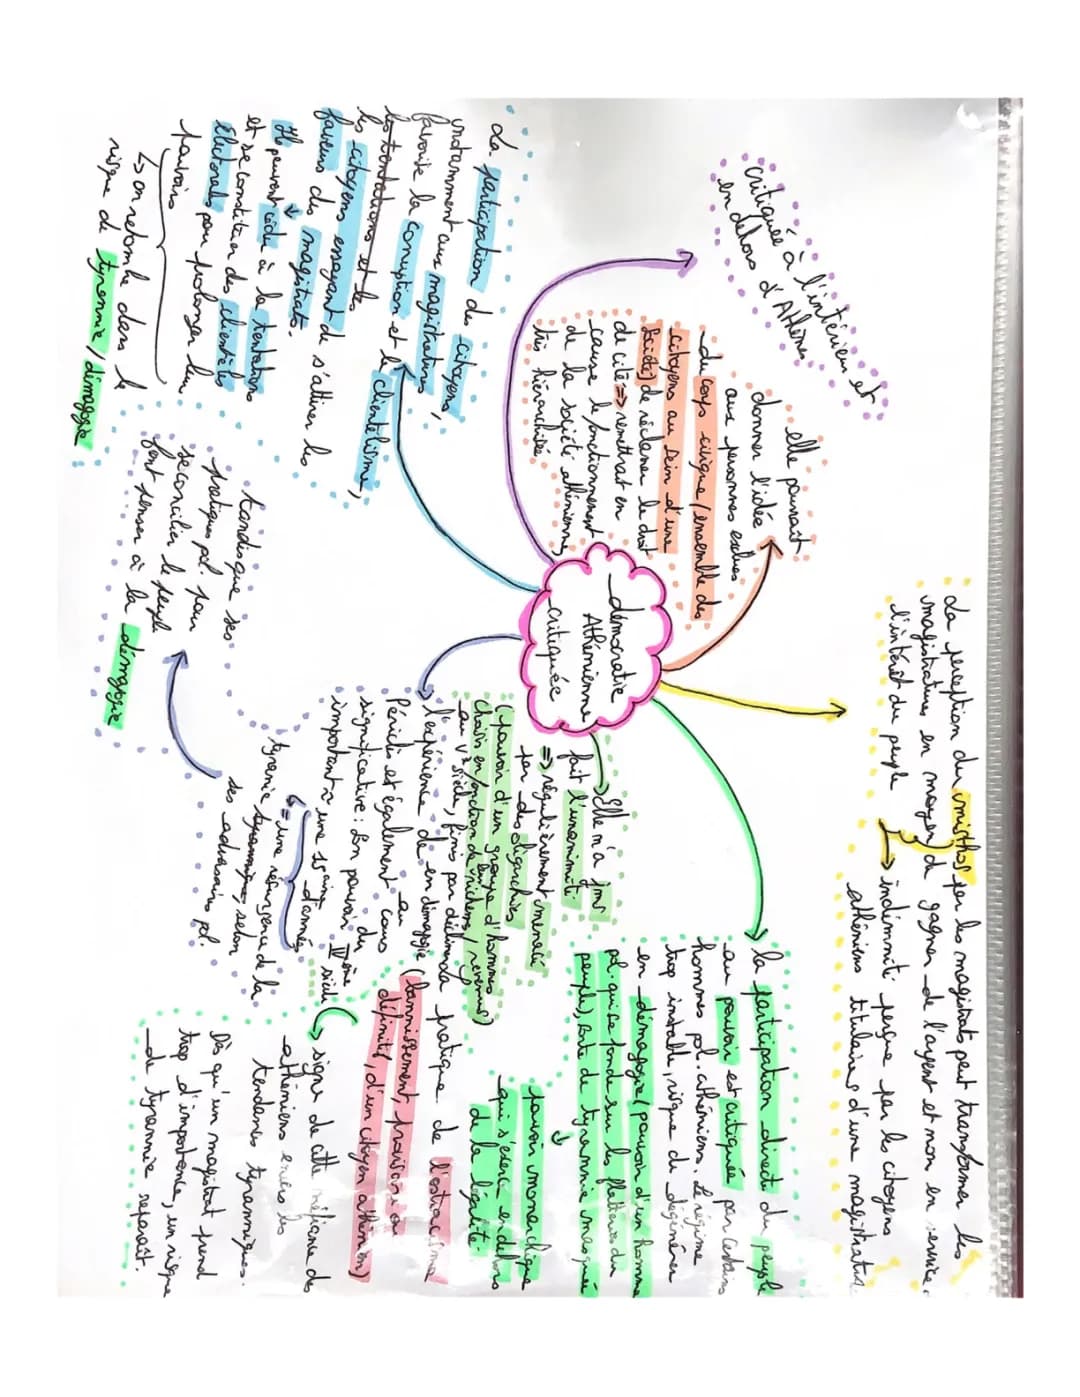 démocratie
Athénienne
critiquée
critiquée à l'intérieur et
en dehors d'Athènes
elle pourrait
donner l'idée
aux personnes exclues
du corps civique (ensemble des
citoyens au sein d'une
société) de réclamer le droit
de cité => remettrait en
cause le fonctionnement
de la société athénienne,
très hiérarchisée.
La perception du misthos par les magistrats peut transformer les
magistratures en moyen de gagner de l'argent et non en service
l'intérêt du peuple
indémnité perçue par les citoyens
athéniens titulaires d'une magistrature
la participation directe du peuple
au pouvoir est critiquée par certains
hommes pol. athéniens. Le régime
trop instable, risque de dégénérer
en démagogie (pouvoir d'un homme
pol. qui se fonde sur les flatteries du
peuple), sorte de tyrannie masquée
↓
pouvoir monarchique
qui s'exerce en dehors
de la légalité
→ Elle n'a jms
fait l'unanimité
=> régulièrement menacée
par des oligarchies
(pouvoir d'un groupe d'hommes
choisis en fonction de richesses/revenus)
au Vᵉ siècle, finis par décliner
l'expérience de en démagogie
Périclès est également au
significative : Son pouvoir du
important à une années
= une résurgence de la
tyrannie, selon
ses adversaires pol.
tandis que ses
pratiques pol. pour
se concilier le peuple
font penser à la démagogie
la pratique de l'ostracisme
(bannissement, provisoire ou
définitif, d'un citoyen athénien)
→ signe de cette méfiance des
athéniens envers les
tendances tyranniques.
Dès qu'un magistrat prend
trop d'importance, un risque
de tyrannie reparaît.
La participation des citoyens,
notamment aux magistratures,
favorite la corruption et le clientélisme,
les tentations et les
les citoyens essayant de s'attirer les
faveurs des magistrats.
↓
Ils peuvent céder à la tentation
et se constituer des clientèles
électorales pour prolonger leur
pouvoirs
↳ on retombe dans le
risque de tyrannie/démagogie